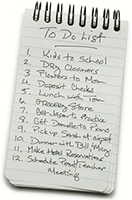 To Do List
1. Kids to School
2. Dry Cleaners
3. Flowers to Mom
4. Deposit Checks
5. Lunch with Tom
6. Grocery Store
7. Get Jason to Practice
8. Get Danielle to Piano
9. Pick up Sarah at airport
10. Dinner with Bill + Amy
11. Make Hotel Reservations
12. Schedule Parent/Teacher
Meeting